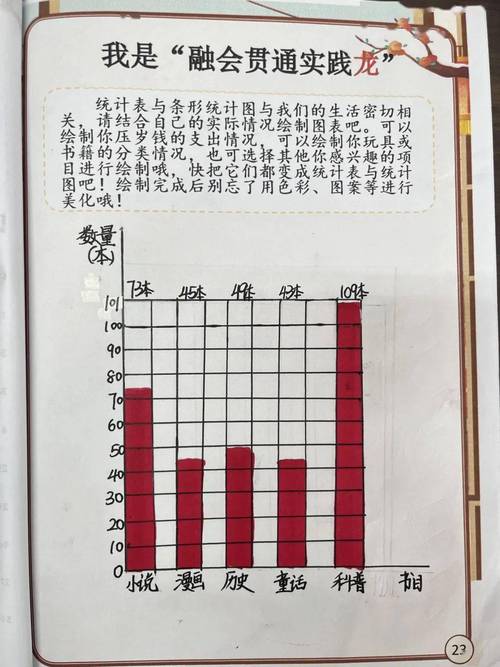 我是“融会贯通实践龙”
统计表与条形统计图与我们的生活密切相
关，请结合自己的实际情况绘制图表吧。可以
绘制你压岁钱的支出情况，可以绘制你玩具或
书籍的分类情况，也可选择其他你感兴趣的项
目进行绘制哦，快把它们都变成统计表与统计
图吧！绘制完成后别忘了用色彩、图案等进行
美化哦！
数量
(本)
73本 45本 49本 43本 109本
101
100
90
80
70
60
50
40
30
20
10
0
小说 漫画 历史 童话 科普 书目
23